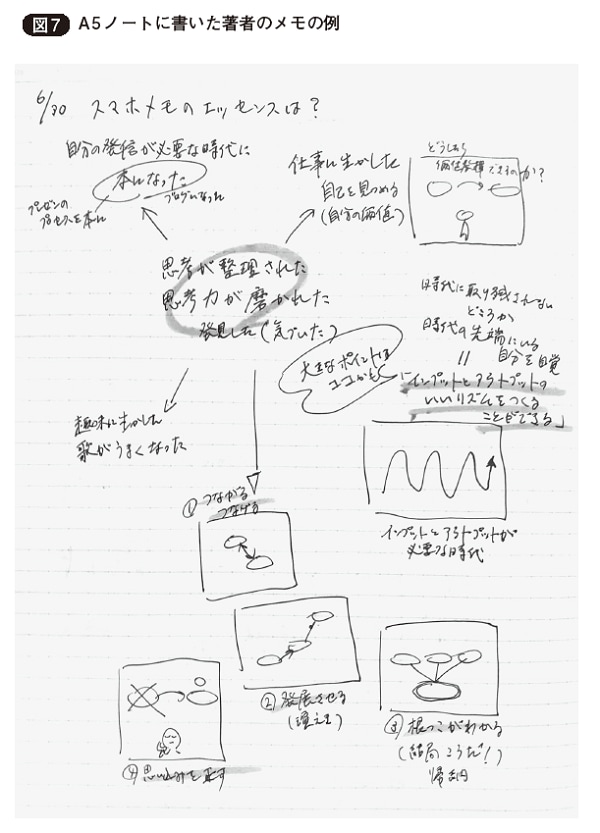 図7 A5ノートに書いた著者のメモの例
6/30 スマホメモのエッセンスは？
自分の発信が必要な時代に
本になった
ブログになった
プレゼンの
プロセスを本に
仕事に生かした
自己を見つめる
(自分の価値)
どうしたら
価値発揮できるのか？
思考が整理された
思考力が磨かれた
発見した(気づいた)
大きなポイントは
ココかも
時代に取り残されない
どころか
時代の先端にいる
自分を自覚
「インプットとアウトプットの
いいリズムをつくる
ことができる」
趣味に生かした
歌がうまくなった
インプットとアウトプットが
必要な時代
① つながる
つなげる
② 発展させる
③ 根っこがわかる
(結局こうだ！)
帰納
④ 思い込みを直す